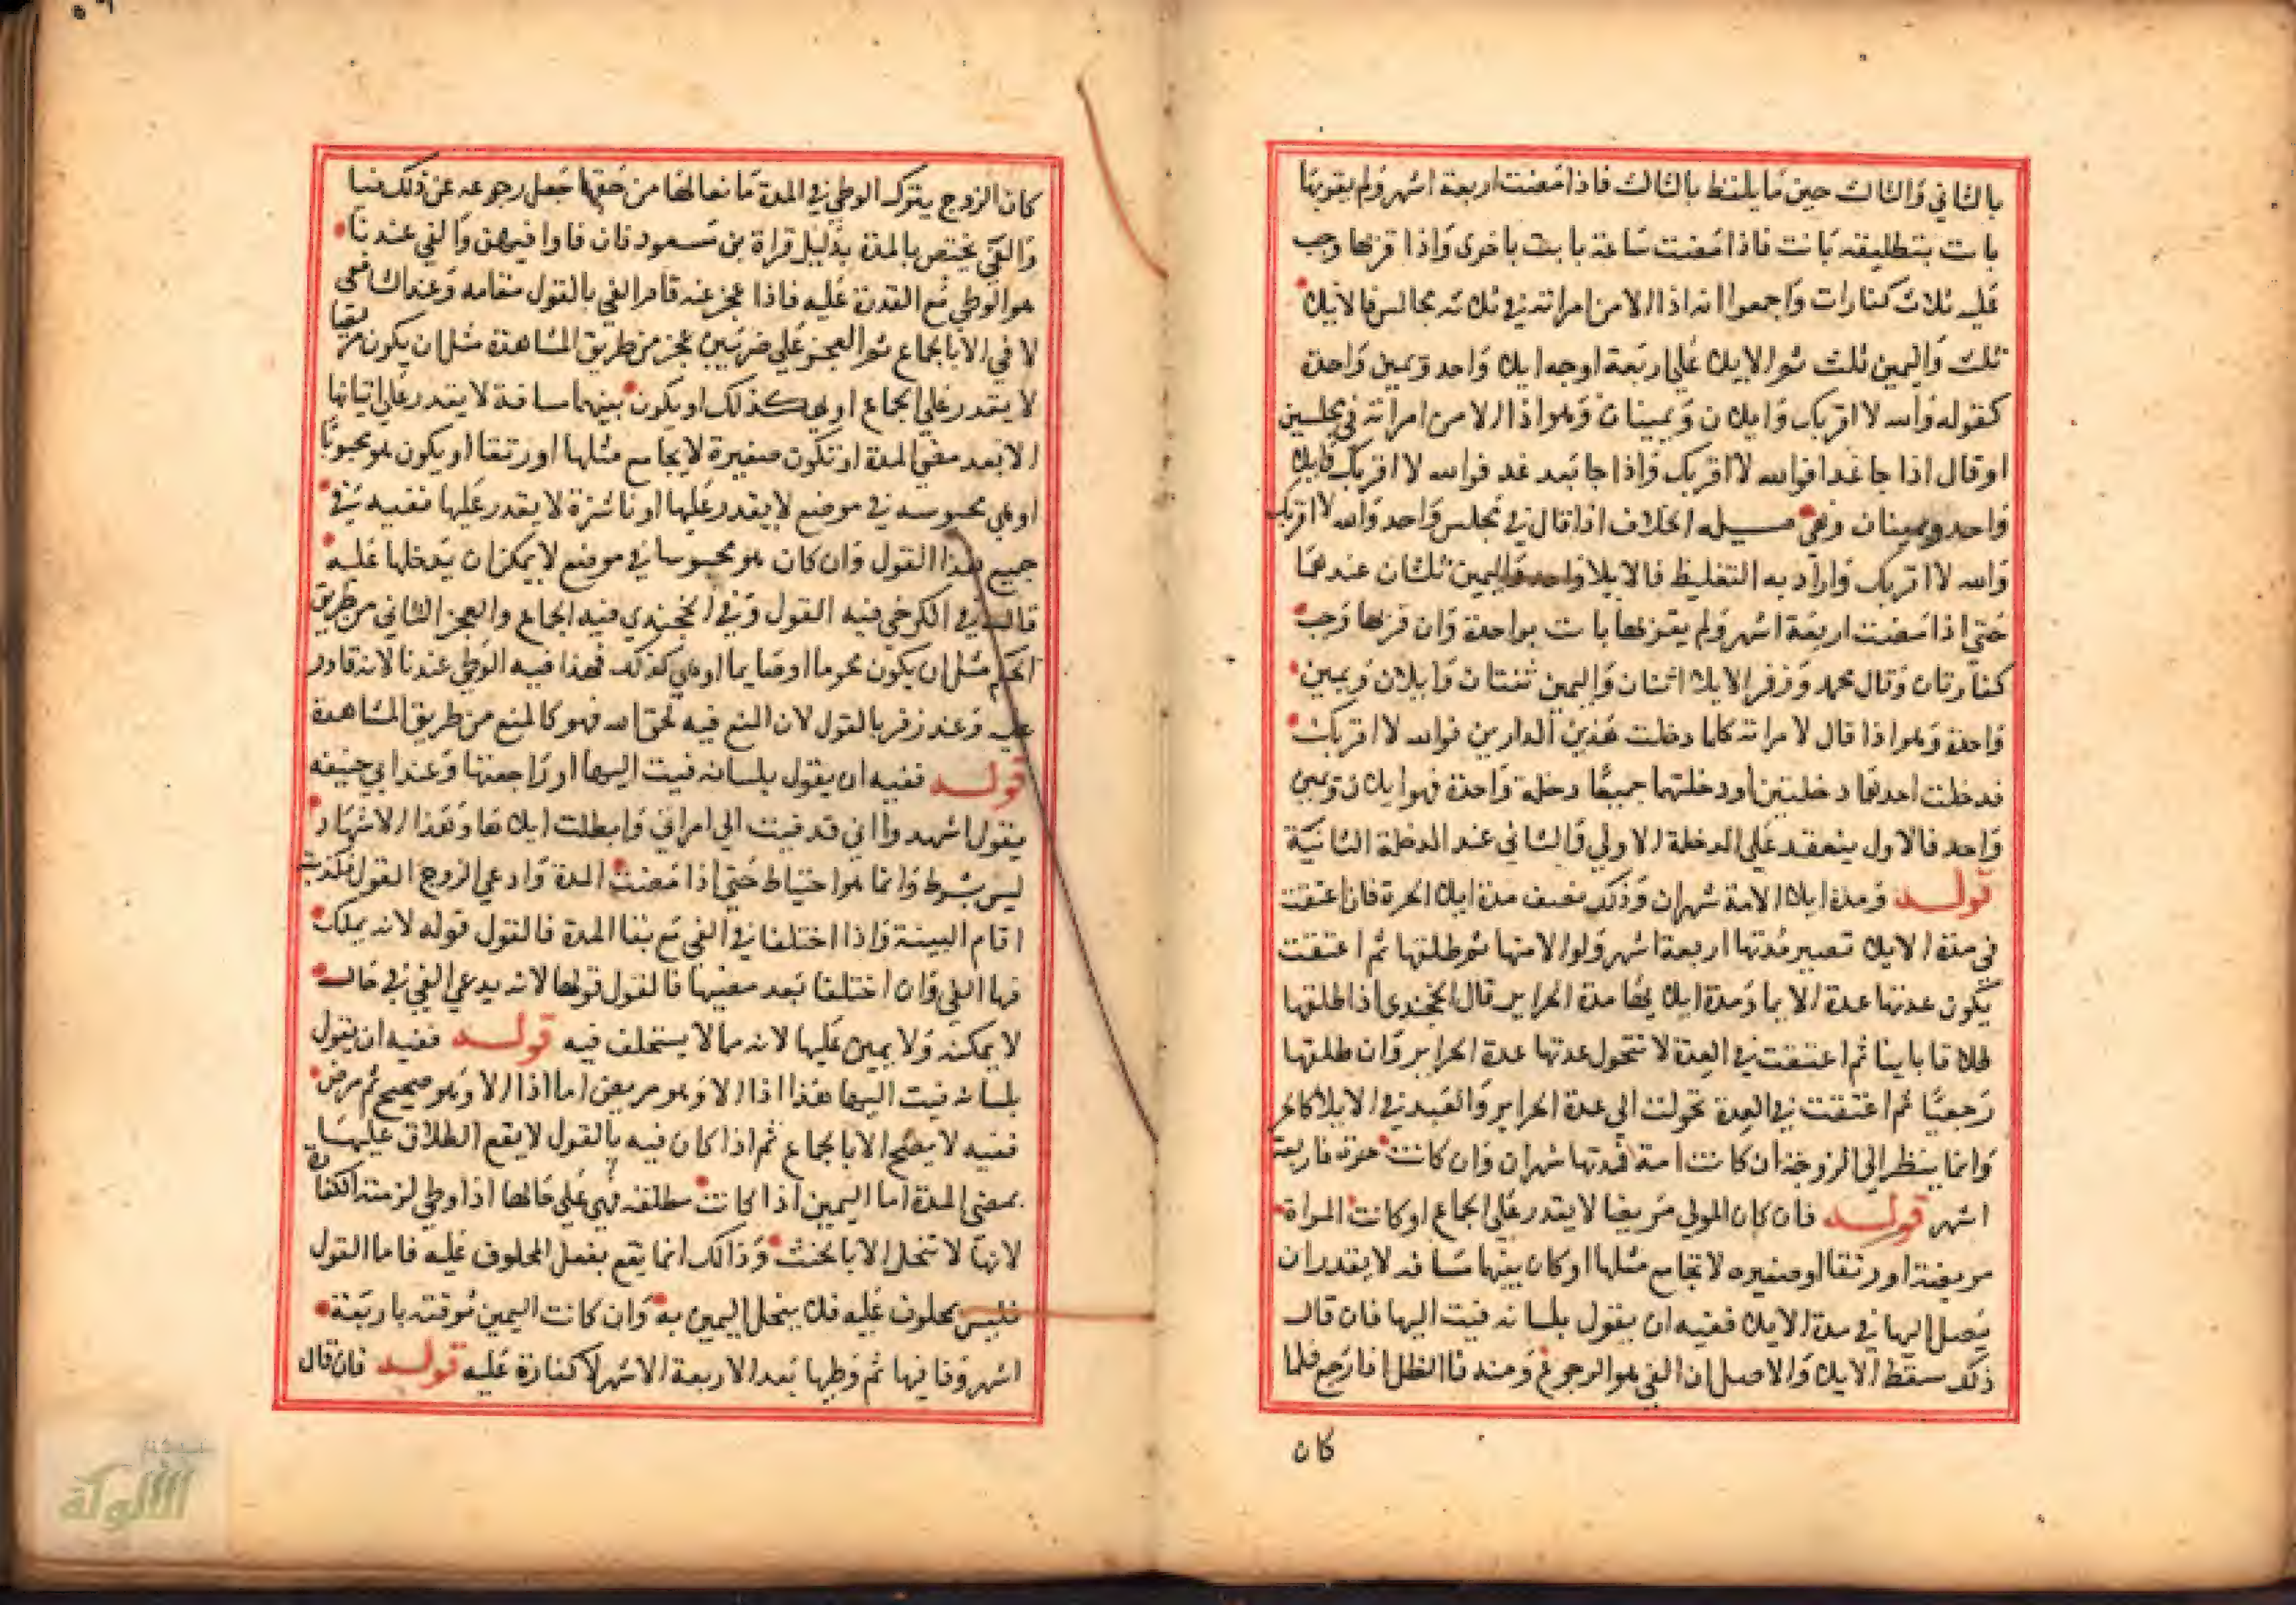 بالثاني والثالث حين ما يلفظ بالثالث فاذا مضت اربعة اشهر ولم يقربها
بانت بتطليقه بانت فاذا مضت ساعة بانت باخرى واذا قربها وجب
عليه ثلاث كفارات واجمعوا انه اذا الا من امراته في ثلاثه مجالس فالايلا
ثلث واليمين ثلث ثم الايلا على اربعة اوجه ايلا واحد ويمين واحدة
كقوله والله لا اقربك وايلا ن ويمينان وهو اذا الا من امراته في مجلسين
او قال اذا جا غدا فوالله لا اقربك واذا جا بعد غد فوالله لا اقربك فايلا
واحد ويمينان وهي مسيله الخلاف اذا قال في مجلس واحد والله لا اقربك
والله لا اقربك واراد به التغليظ فالايلا واحد واليمين ثلثان عندهما
حتى اذا مضت اربعة اشهر ولم يقربها بانت بواحدة وان قربها وجب
كفارتان وقال محمد وزفر الايلا اثنان واليمين ثنتان وايلان ويمين
واحدة وهو اذا قال لامراته كلما دخلت هذين الدارين فوالله لا اقربك
فدخلت احدهما دخلتين او دخلتهما جميعًا دخلة واحدة فهو ايلا ن ويمين
واحد فالاول ينعقد على الدخلة الاولي والثاني عند الدخلة الثانية
قولـــه ومدة ايلا الامة شهران وذلك نصف مدة ايلا الحرة فان اعتقت
في مدة الايلا تصير مدتها اربعة اشهر ولو الا منها ثم طلقها ثم اعتقت
يكون عدتها عدة الاما ومدة ايلائها مدة الحراير قال الخجندي اذا طلقها
طلاقا باينا ثم اعتقت في العدة لا تتحول عدتها عدة الحراير وان طلقها
رجعيًا ثم اعتقت في العدة تحولت الي عدة الحراير والعبد في الايلا كالحر
وانما ينظر الى الزوجة ان كانت امة فمدتها شهران وان كانت حرة فاربعة
اشهر قولـــه فان كان المولي مريضا لا يقدر على الجماع او كانت المراة
مريضة او رتقا او صغيره لا تجامع مثلها او كان بينهما مسافه لا يقدر ان
يصل اليها في مدة الايلا ففيه ان يقول بلسانه فيت اليها فان قال
ذلك سقط الايلا والاصل ان الفي هو الرجوع ومنه فا الظل اذا رجع فلما
كان
كان الزوج يترك الوطي في المدة مانعا لها من حقها جعل رجوعه عن ذلك فيا
والفي يختص بالمدة بدليل قراة بن مسعود فان فاوا فيهن والفي عندنا
هو الوطي مع القدرة عليه فاذا عجز عنه قام الفي بالقول مقامه وعند الشافعي
لا في الا بالجماع ثم العجز على ضربين عجز من طريق المشاهدة مثل ان يكون مريضا
لا يقدر على الجماع او هي كذلك او يكون بينهما مسافة لا يقدر على اتيانها
الا بعد مضي المدة او تكون صغيرة لا يجامع مثلها او رتقا او يكون هو مجبوبًا
او هي محبوسه في موضع لا يقدر عليها او ناشزة لا يقدر عليها ففيه في
جميع هذا القول وان كان هو محبوسا في موضع لا يمكن ان يدخلها عليه
قال في الكرخي فيه القول وفي الخجندي فيه الجماع والعجز الثاني من طريق
الحكم مثل ان يكون محرما او صايما او هي كذلك فهذا فيه الوطي عندنا لانه قادر
عليه وعند زفر بالقول لان المنع فيه لحق الله فهو كالمنع من طريق المشاهدة
قولـــه ففيه ان يقول بلسانه فيت اليها او راجعتها وعند ابي حنيفه
يقول اشهدوا اني قد فيت الي امراتي وابطلت ايلاها وهذا الاشهاد
ليس بشرط وانما هو احتياط حتى اذا مضت المدة وادعي الزوج القول فكذبته
اقام البينة واذا اختلفا في الفي مع بقا المدة فالقول قوله لانه يملك
فيها الفي وان اختلفا بعد مضيها فالقول قولها لانه يدعي الفي في حال
لا يمكنه ولا يمين عليها لانه مما لا يستحلف فيه قولـــه ففيه ان يقول
بلسانه فيت اليها هذا اذا الا وهو مريض اما اذا الا وهو صحيح ثم مرض
ففيه لا يصح الا بالجماع ثم اذا كان فيه بالقول لا يقع الطلاق عليها
بمضي المدة اما اليمين اذا كانت مطلقه فهي على حالها اذا وطي لزمته الكفارة
لانها لا تنحل الا بالحنث وذالك انما يقع بفعل المحلوف عليه فاما القول
فليس بمحلوف عليه فلا ينحل اليمين به وان كانت اليمين موقته باربعة
اشهر وفا فيها ثم وطيها بعد الاربعة الاشهر لا كفارة عليه قولـــه فان قال
الألوكة